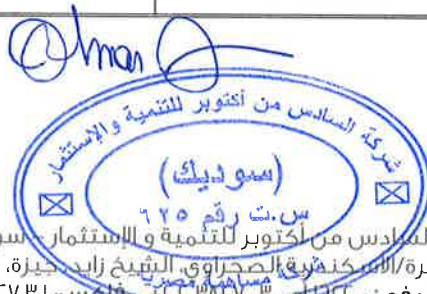 Omar
شركة السادس من أكتوبر للتنمية والإستثمار
(سوديك)
س.ت رقم ٦٢٥
شركة مساهمة مصرية
السادس من أكتوبر للتنمية و الإستثمار - سو
رة/الأسكندرية الصحراوي، الشيخ زايد، جيزة،